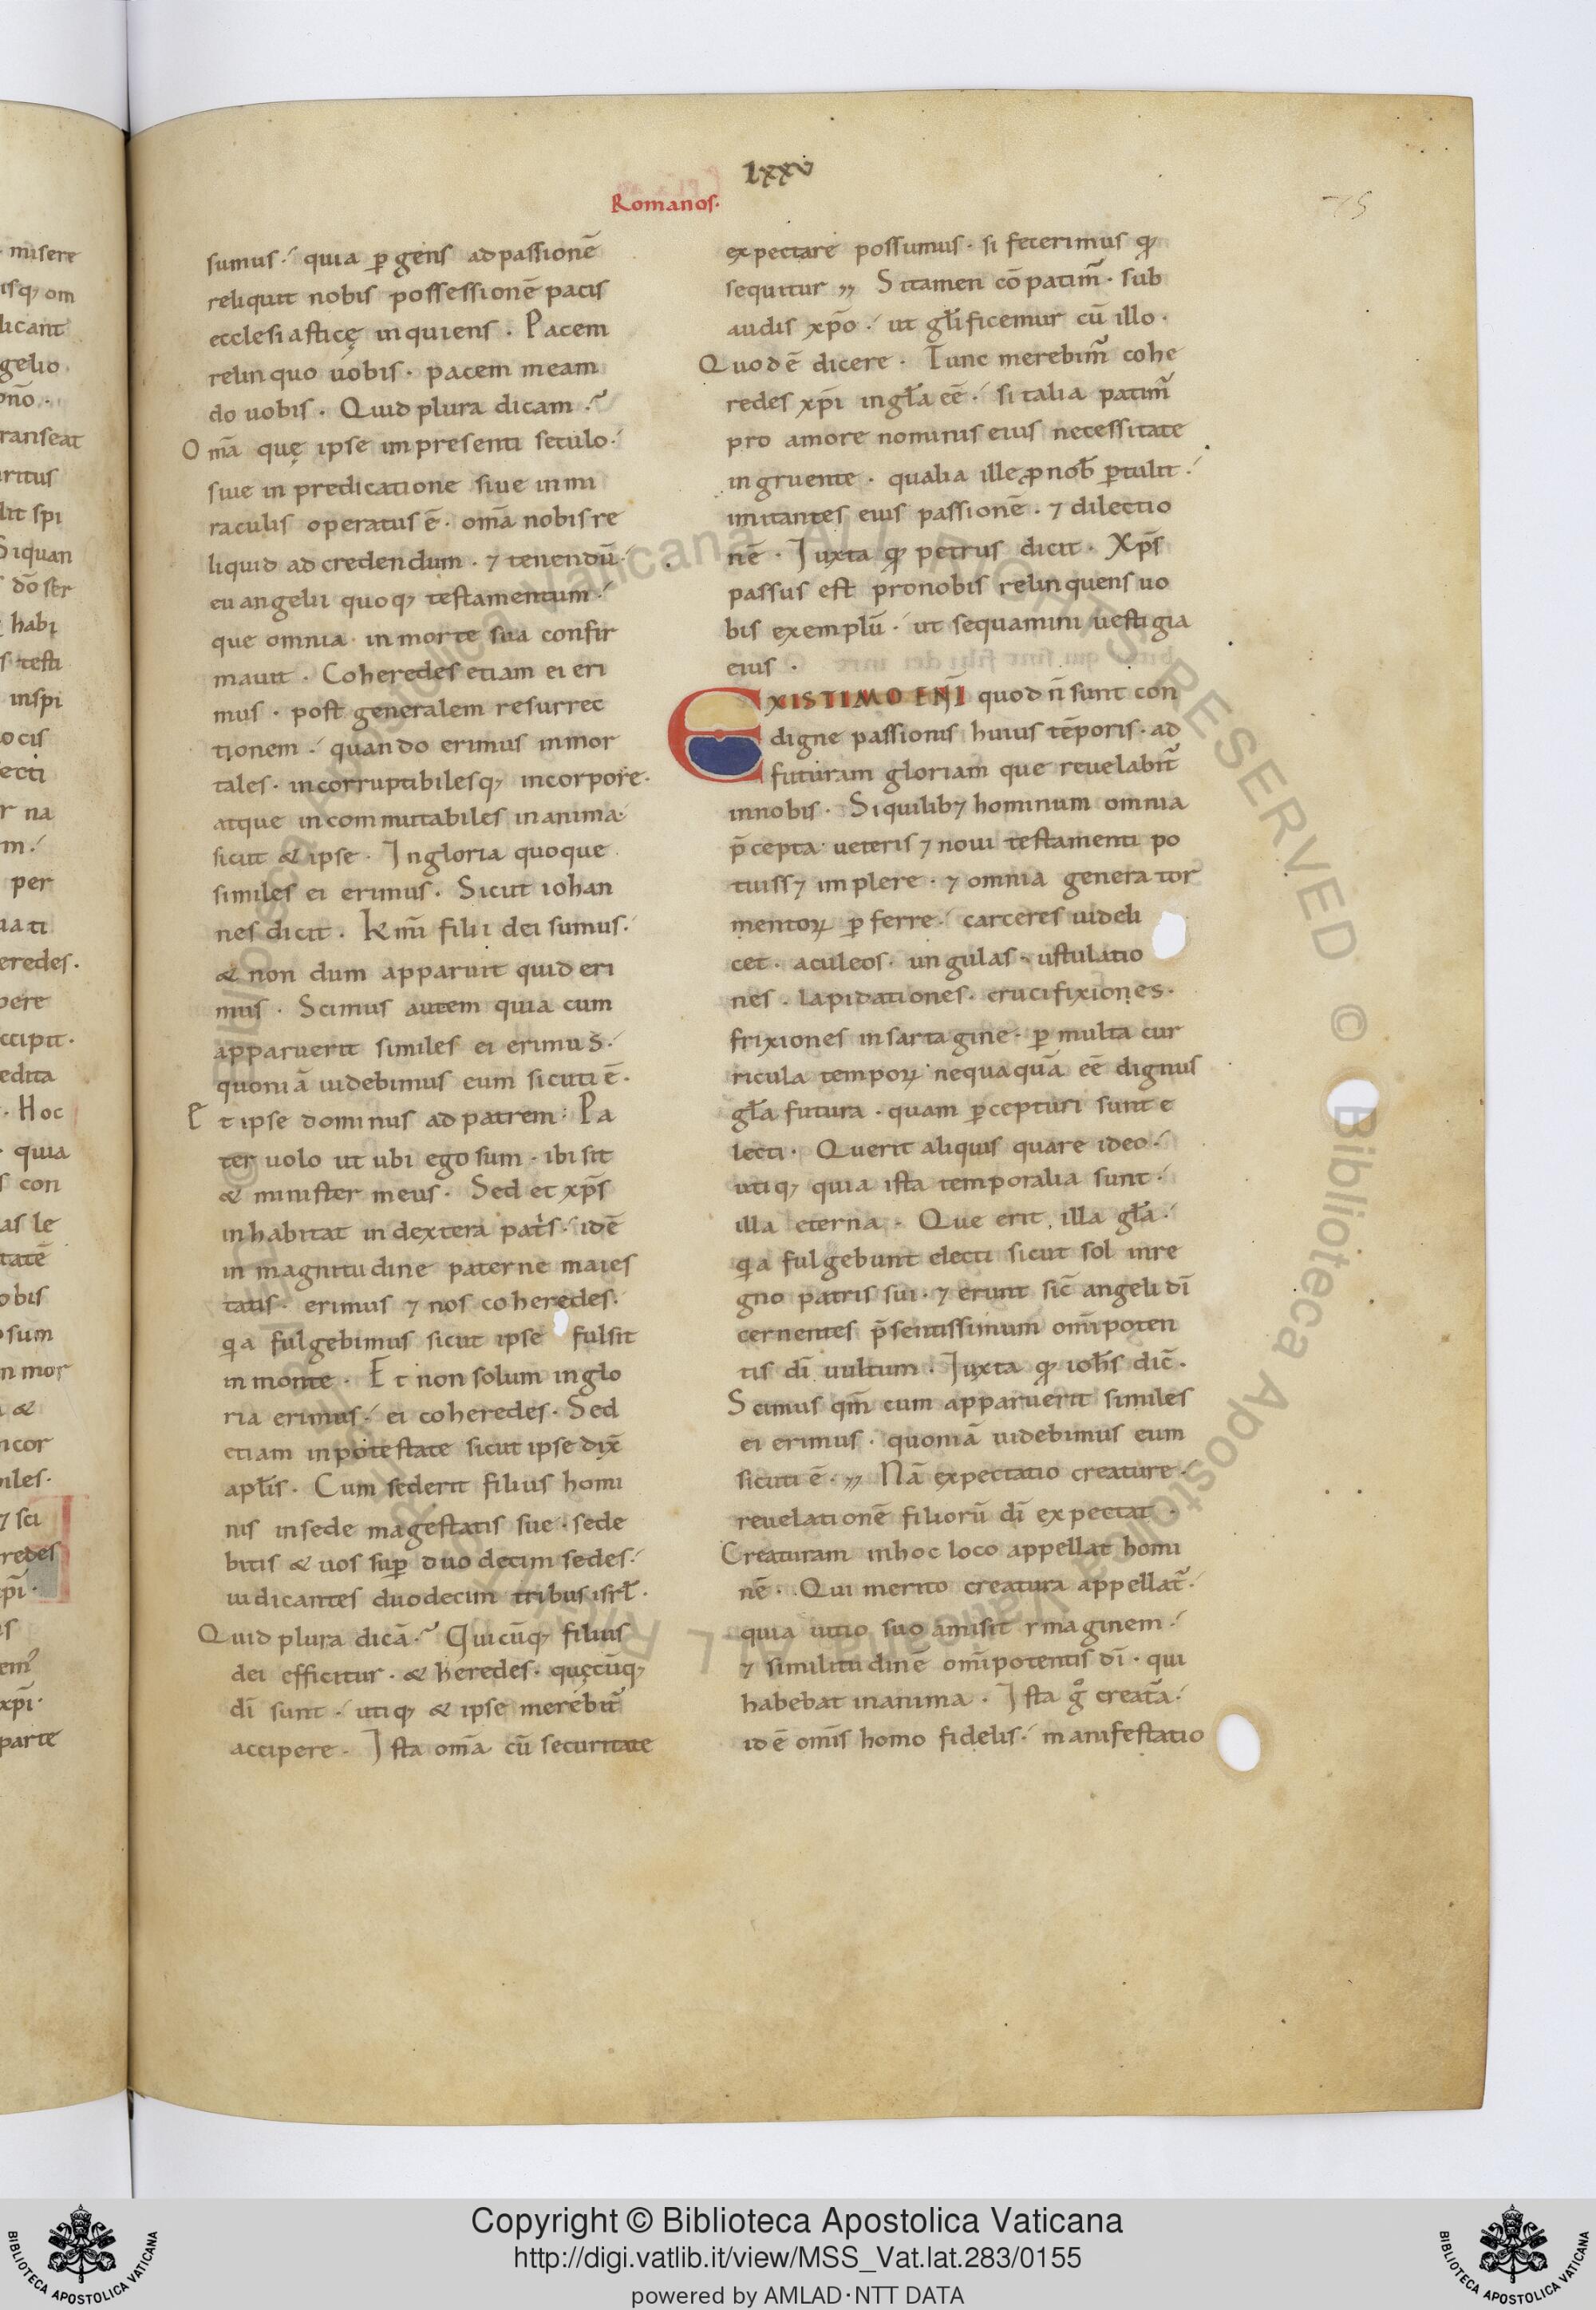 lxxv
Romanos.
75
sumus. quia p̱ gens ad passionē
reliquit nobis possessionē pacis
ecclesiasticę inquiens. Pacem
relinquo uobis. pacem meam
do uobis. Quid plura dicam.
Om̄a quę ipse in presenti seculo.
siue in predicatione siue in mi
raculis operatus ē. om̄a nobis re
liquid ad credendum. ⁊ tenendū.
euangelii quoq; testamentum.
que omnia in morte sua confir
mauit. Coheredes etiam ei eri
mus. post generalem resurrec
tionem. quando erimus inmor
tales. incorruptibilesq; in corpore.
atque incommutabiles in anima.
sicut & ipse. In gloria quoque
similes ei erimus. Sicut iohan
nes dicit. Km̄i filii dei sumus.
& non dum apparuit quid eri
mus. Scimus autem quia cum
apparuerit similes ei erimus.
quoniā uidebimus eum sicuti ē.
Et ipse dominus ad patrem. Pa
ter uolo ut ubi ego sum. ibi sit
& minister meus. Sed et xp̄s
inhabitat in dextera pat̄s. idē
in magnitudine paterne maies
tatis. erimus ⁊ nos coheredes.
qa fulgebimus sicut ipse fulsit
in monte. Et non solum in glo
ria erimus. ei coheredes. Sed
etiam in potestate sicut ipse dix̄
apl̄is. Cum sederit filius homi
nis in sede magestatis sue. sede
bitis & uos sup̱ duodecim sedes.
iudicantes duodecim tribus isrl̄.
Quid plura dicā. Quicūq; filius
dei efficitur. & heredes. quęcūq;
dī sunt. utiq; & ipse merebit᷑
accipere. Ista om̄a cū securitate
expectare possumus. si fecerimus qđ
sequitur ,, Si tamen cōpatim᷑. sub
audis xp̄o. ut gl̄ificemur cū illo.
Quod ē dicere. Tunc merebim᷑ cohe
redes xp̄i in gl̄a eē. si talia patim᷑
pro amore nominis eius necessitate
ingruente. qualia ille p nob̄ p̱tulit.
imitantes eius passionē. ⁊ dilectio
nē. Iuxta qđ petrus dicit. Xp̄s
passus est pro nobis relinquens uo
bis exemplū. ut sequamini uestigia
eius.
EXISTIMO ENĪ quod n̄ sunt con
digne passionis huius tēporis. ad
futuram gloriam que reuelabit᷑
in nobis. Si quilib⁊ hominum omnia
p̄cepta ueteris ⁊ noui testamenti po
tuiss⁊ implere. ⁊ omnia genera tor
mentoꝝ p̱ferre. carceres uideli
cet. aculeos. ungulas. ustulatio
nes. lapidationes. crucifixiones.
frixiones in sartagine. p̱ multa cur
ricula tempoꝝ nequaquā eē dignus
gl̄a futura. quam p̱cepturi sunt e
lecti. Querit aliquis quare ideo.
utiq; quia ista temporalia sunt.
illa eterna. Que erit illa gl̄a.
qa fulgebunt electi sicut sol in re
gno patris sui. ⁊ erunt sic̄ angeli dī
cernentes p̄sentissimum om̄ipoten
tis dī uultum. Iuxta qđ ioh̄s dic̄.
Scimus qm̄ cum apparuerit similes
ei erimus. quoniā uidebimus eum
sicuti ē. ,, Nā expectatio creature.
reuelationē filiorū dī expectat.
Creaturam in hoc loco appellat homi
nē. Qui merito creatura appellat᷑.
quia uitio suo amisit imaginem.
⁊ similitudinē om̄ipotentis dī. qui
habebat in anima. Ista g̊ creat᷑a.
idē om̄is homo fidelis. manifestatio
Copyright © Biblioteca Apostolica Vaticana
http://digi.vatlib.it/view/MSS_Vat.lat.283/0155
powered by AMLAD·NTT DATA